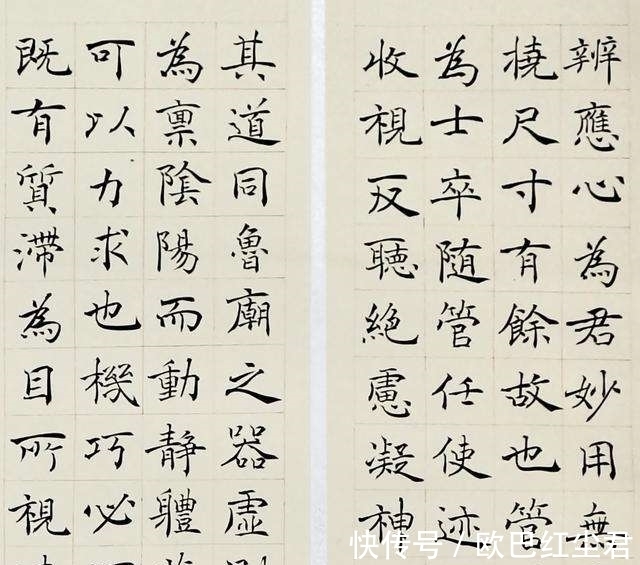 辨應心為君妙用無
撓尺寸有餘故也管
為士卒随管任使迹
收視反聽絶慮凝神
其道同魯廟之器虛
為禀陰陽而動静體
可以力求也機巧必
既有質滯為目所視
快传号 / 欧巴红尘君